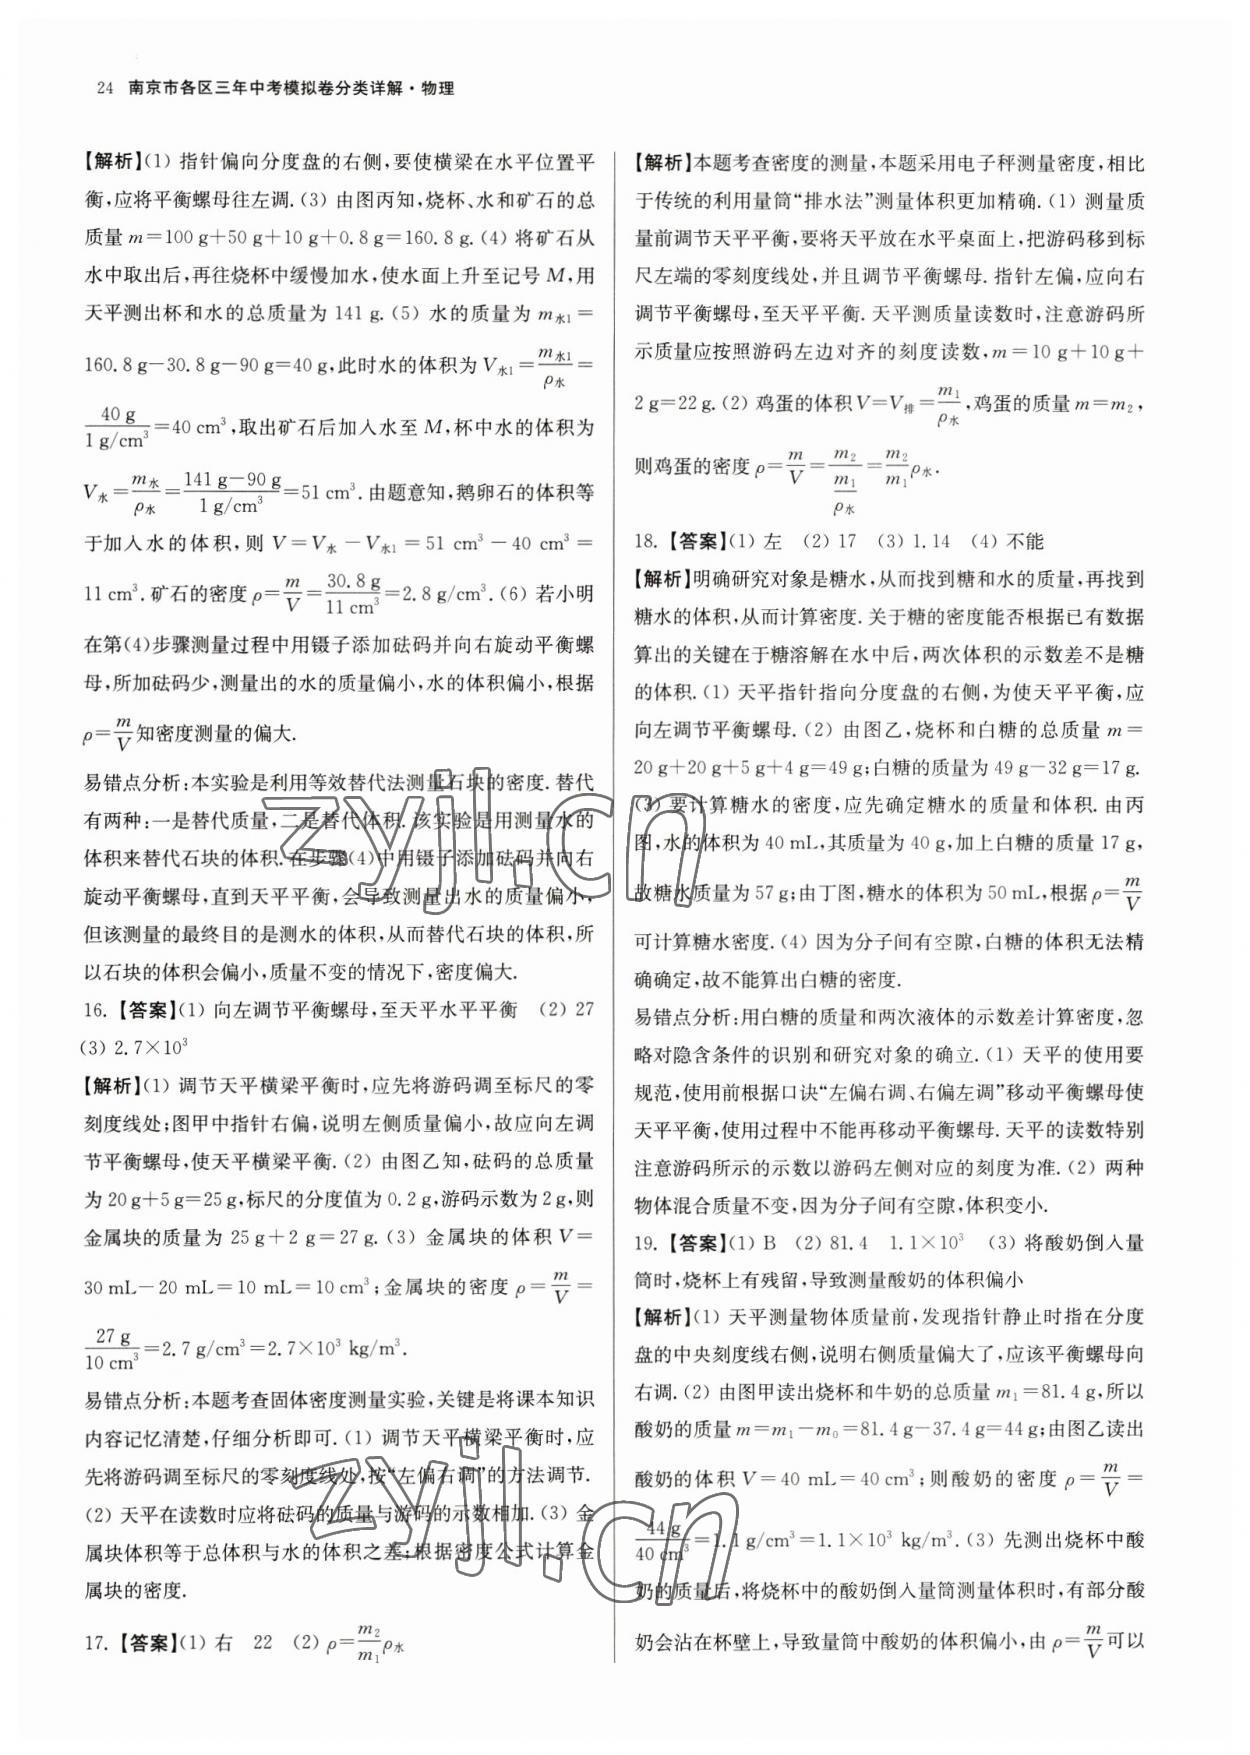 24 南京市各区三年中考模拟卷分类详解·物理
【解析】(1) 指针偏向分度盘的右侧,要使横梁在水平位置平
衡,应将平衡螺母往左调.(3) 由图丙知,烧杯、水和矿石的总
质量 m＝100 g＋50 g＋10 g＋0.8 g＝160.8 g.(4) 将矿石从
水中取出后,再往烧杯中缓慢加水,使水面上升至记号 M,用
天平测出杯和水的总质量为 141 g.(5) 水的质量为 m水1＝
160.8 g－30.8 g－90 g＝40 g,此时水的体积为 V水1＝m水1/ρ水＝
40 g/1 g/cm³＝40 cm³,取出矿石后加入水至 M,杯中水的体积为
V水＝m水/ρ水＝141 g－90 g/1 g/cm³＝51 cm³.由题意知,鹅卵石的体积等
于加入水的体积,则 V＝V水－V水1＝51 cm³－40 cm³＝
11 cm³.矿石的密度 ρ＝m/V＝30.8 g/11 cm³＝2.8 g/cm³.(6) 若小明
在第(4)步骤测量过程中用镊子添加砝码并向右旋动平衡螺
母,所加砝码少,测量出的水的质量偏小,水的体积偏小,根据
ρ＝m/V知密度测量的偏大.
易错点分析:本实验是利用等效替代法测量石块的密度.替代
有两种:一是替代质量,二是替代体积.该实验是用测量水的
体积来替代石块的体积.在步骤(4)中用镊子添加砝码并向右
旋动平衡螺母,直到天平平衡,会导致测量出水的质量偏小,
但该测量的最终目的是测水的体积,从而替代石块的体积,所
以石块的体积会偏小,质量不变的情况下,密度偏大.
16.【答案】(1) 向左调节平衡螺母,至天平水平平衡 (2) 27
(3) 2.7×10³
【解析】(1) 调节天平横梁平衡时,应先将游码调至标尺的零
刻度线处;图甲中指针右偏,说明左侧质量偏小,故应向左调
节平衡螺母,使天平横梁平衡.(2) 由图乙知,砝码的总质量
为 20 g＋5 g＝25 g,标尺的分度值为 0.2 g,游码示数为 2 g,则
金属块的质量为 25 g＋2 g＝27 g.(3) 金属块的体积 V＝
30 mL－20 mL＝10 mL＝10 cm³;金属块的密度 ρ＝m/V＝
27 g/10 cm³＝2.7 g/cm³＝2.7×10³ kg/m³.
易错点分析:本题考查固体密度测量实验,关键是将课本知识
内容记忆清楚,仔细分析即可.(1) 调节天平横梁平衡时,应
先将游码调至标尺的零刻度线处,按“左偏右调”的方法调节.
(2) 天平在读数时应将砝码的质量与游码的示数相加.(3) 金
属块体积等于总体积与水的体积之差;根据密度公式计算金
属块的密度.
17.【答案】(1) 右 22 (2) ρ＝m₂/m₁ρ水
【解析】本题考查密度的测量,本题采用电子秤测量密度,相比
于传统的利用量筒“排水法”测量体积更加精确.(1) 测量质
量前调节天平平衡,要将天平放在水平桌面上,把游码移到标
尺左端的零刻度线处,并且调节平衡螺母.指针左偏,应向右
调节平衡螺母,至天平平衡.天平测质量读数时,注意游码所
示质量应按照游码左边对齐的刻度读数,m＝10 g＋10 g＋
2 g＝22 g.(2) 鸡蛋的体积 V＝V排＝m₁/ρ水,鸡蛋的质量 m＝m₂,
则鸡蛋的密度 ρ＝m/V＝m₂/(m₁/ρ水)＝m₂/m₁ρ水.
18.【答案】(1) 左 (2) 17 (3) 1.14 (4) 不能
【解析】明确研究对象是糖水,从而找到糖和水的质量,再找到
糖水的体积,从而计算密度.关于糖的密度能否根据已有数据
算出的关键在于糖溶解在水中后,两次体积的示数差不是糖
的体积.(1) 天平指针指向分度盘的右侧,为使天平平衡,应
向左调节平衡螺母.(2) 由图乙,烧杯和白糖的总质量 m＝
20 g＋20 g＋5 g＋4 g＝49 g;白糖的质量为 49 g－32 g＝17 g.
(3) 要计算糖水的密度,应先确定糖水的质量和体积.由丙
图,水的体积为 40 mL,其质量为 40 g,加上白糖的质量 17 g,
故糖水质量为 57 g;由丁图,糖水的体积为 50 mL,根据 ρ＝m/V
可计算糖水密度.(4) 因为分子间有空隙,白糖的体积无法精
确确定,故不能算出白糖的密度.
易错点分析:用白糖的质量和两次液体的示数差计算密度,忽
略对隐含条件的识别和研究对象的确立.(1) 天平的使用要
规范,使用前根据口诀“左偏右调、右偏左调”移动平衡螺母使
天平平衡,使用过程中不能再移动平衡螺母.天平的读数特别
注意游码所示的示数以游码左侧对应的刻度为准.(2) 两种
物体混合质量不变,因为分子间有空隙,体积变小.
19.【答案】(1) B (2) 81.4 1.1×10³ (3) 将酸奶倒入量
筒时,烧杯上有残留,导致测量酸奶的体积偏小
【解析】(1) 天平测量物体质量前,发现指针静止时指在分度
盘的中央刻度线右侧,说明右侧质量偏大了,应该平衡螺母向
右调.(2) 由图甲读出烧杯和牛奶的总质量 m₁＝81.4 g,所以
酸奶的质量 m＝m₁－m₀＝81.4 g－37.4 g＝44 g;由图乙读出
酸奶的体积 V＝40 mL＝40 cm³;则酸奶的密度 ρ＝m/V＝
44 g/40 cm³＝1.1 g/cm³＝1.1×10³ kg/m³.(3) 先测出烧杯中酸
奶的质量后,将烧杯中的酸奶倒入量筒测量体积时,有部分酸
奶会沾在杯壁上,导致量筒中酸奶的体积偏小,由 ρ＝m/V可以
zyjl.cn
zyjl.cn